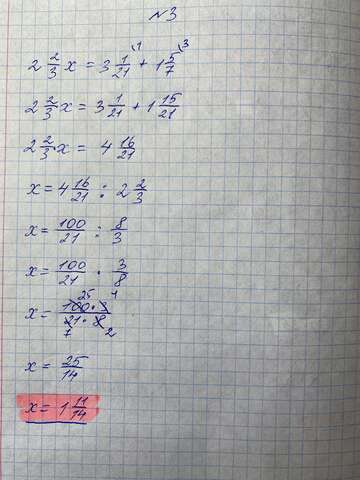 №3
2 2/3 x = 3 1/21 \1 + 1 5/7 \3
2 2/3 x = 3 1/21 + 1 15/21
2 2/3 · x = 4 16/21
x = 4 16/21 : 2 2/3
x = 100/21 : 8/3
x = 100/21 · 3/8
25 1
x = 100 · 3 / 21 · 8
7 2
x = 25/14
x = 1 11/14